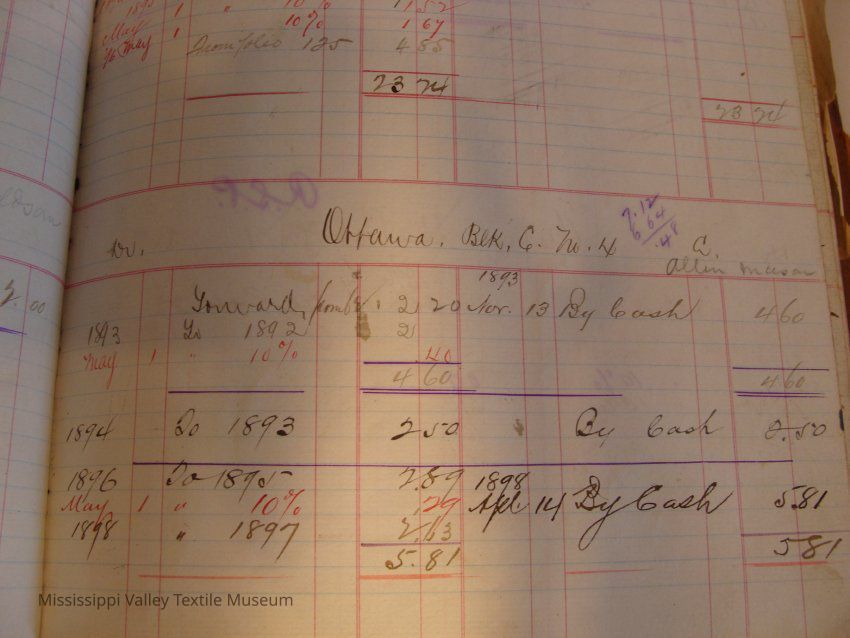 1893 1 " 10% 1.52
May 1 10% 1 67
96 May 1 From folio 125 4 85
23 74
23 74
7.12
6 64
.48
Dr. Ottawa. Blk. C. No. 4 C.
Allin
2.00
1893
Forward, 2 20 Nov. 13 By Cash 4 60
1893 To 1892 2
May 1 " 10% .40
4 60 4 60
1894 To 1893 2 50 By Cash 2.50
1896 To 1895 2.89 1898
May 1 " 10% .29 Apl. 14 By Cash 5.81
1898 " 1897 2.63
5.81 5.81
Mississippi Valley Textile Museum